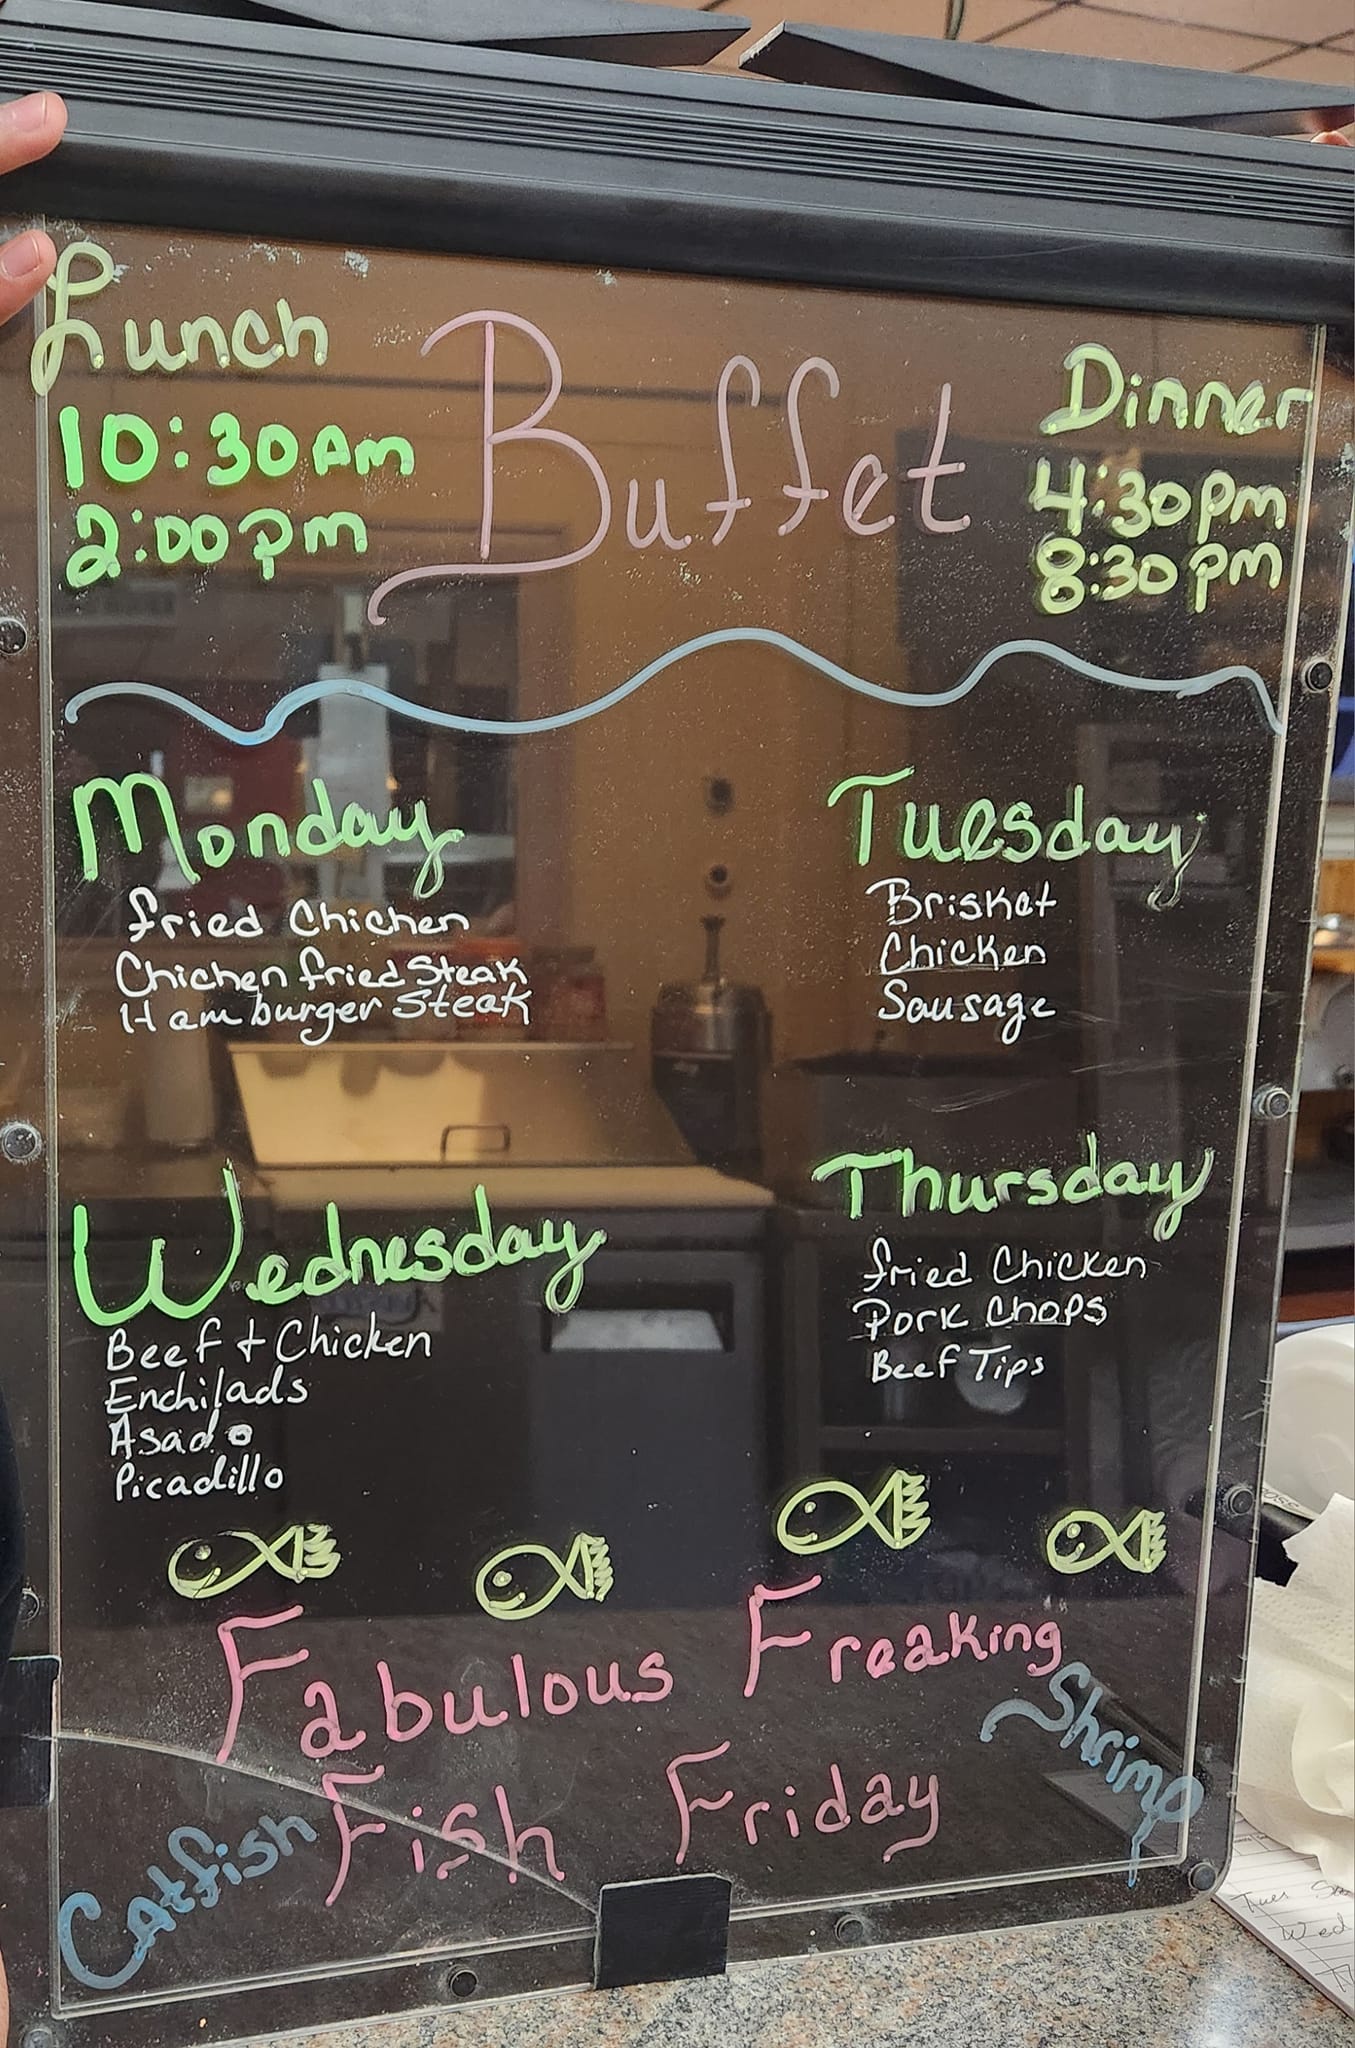 Lunch
10:30 Am
2:00 pm
Buffet
Dinner
4:30 pm
8:30 pm
Monday
fried Chicken
Chicken fried Steak
Hamburger Steak
Tuesday
Brisket
Chicken
Sausage
Wednesday
Beef + Chicken
Enchilads
Asado
Picadillo
Thursday
fried Chicken
Pork Chops
Beef Tips
Fabulous Freaking
Fish Friday
Catfish
Shrimp
Tues
Wed